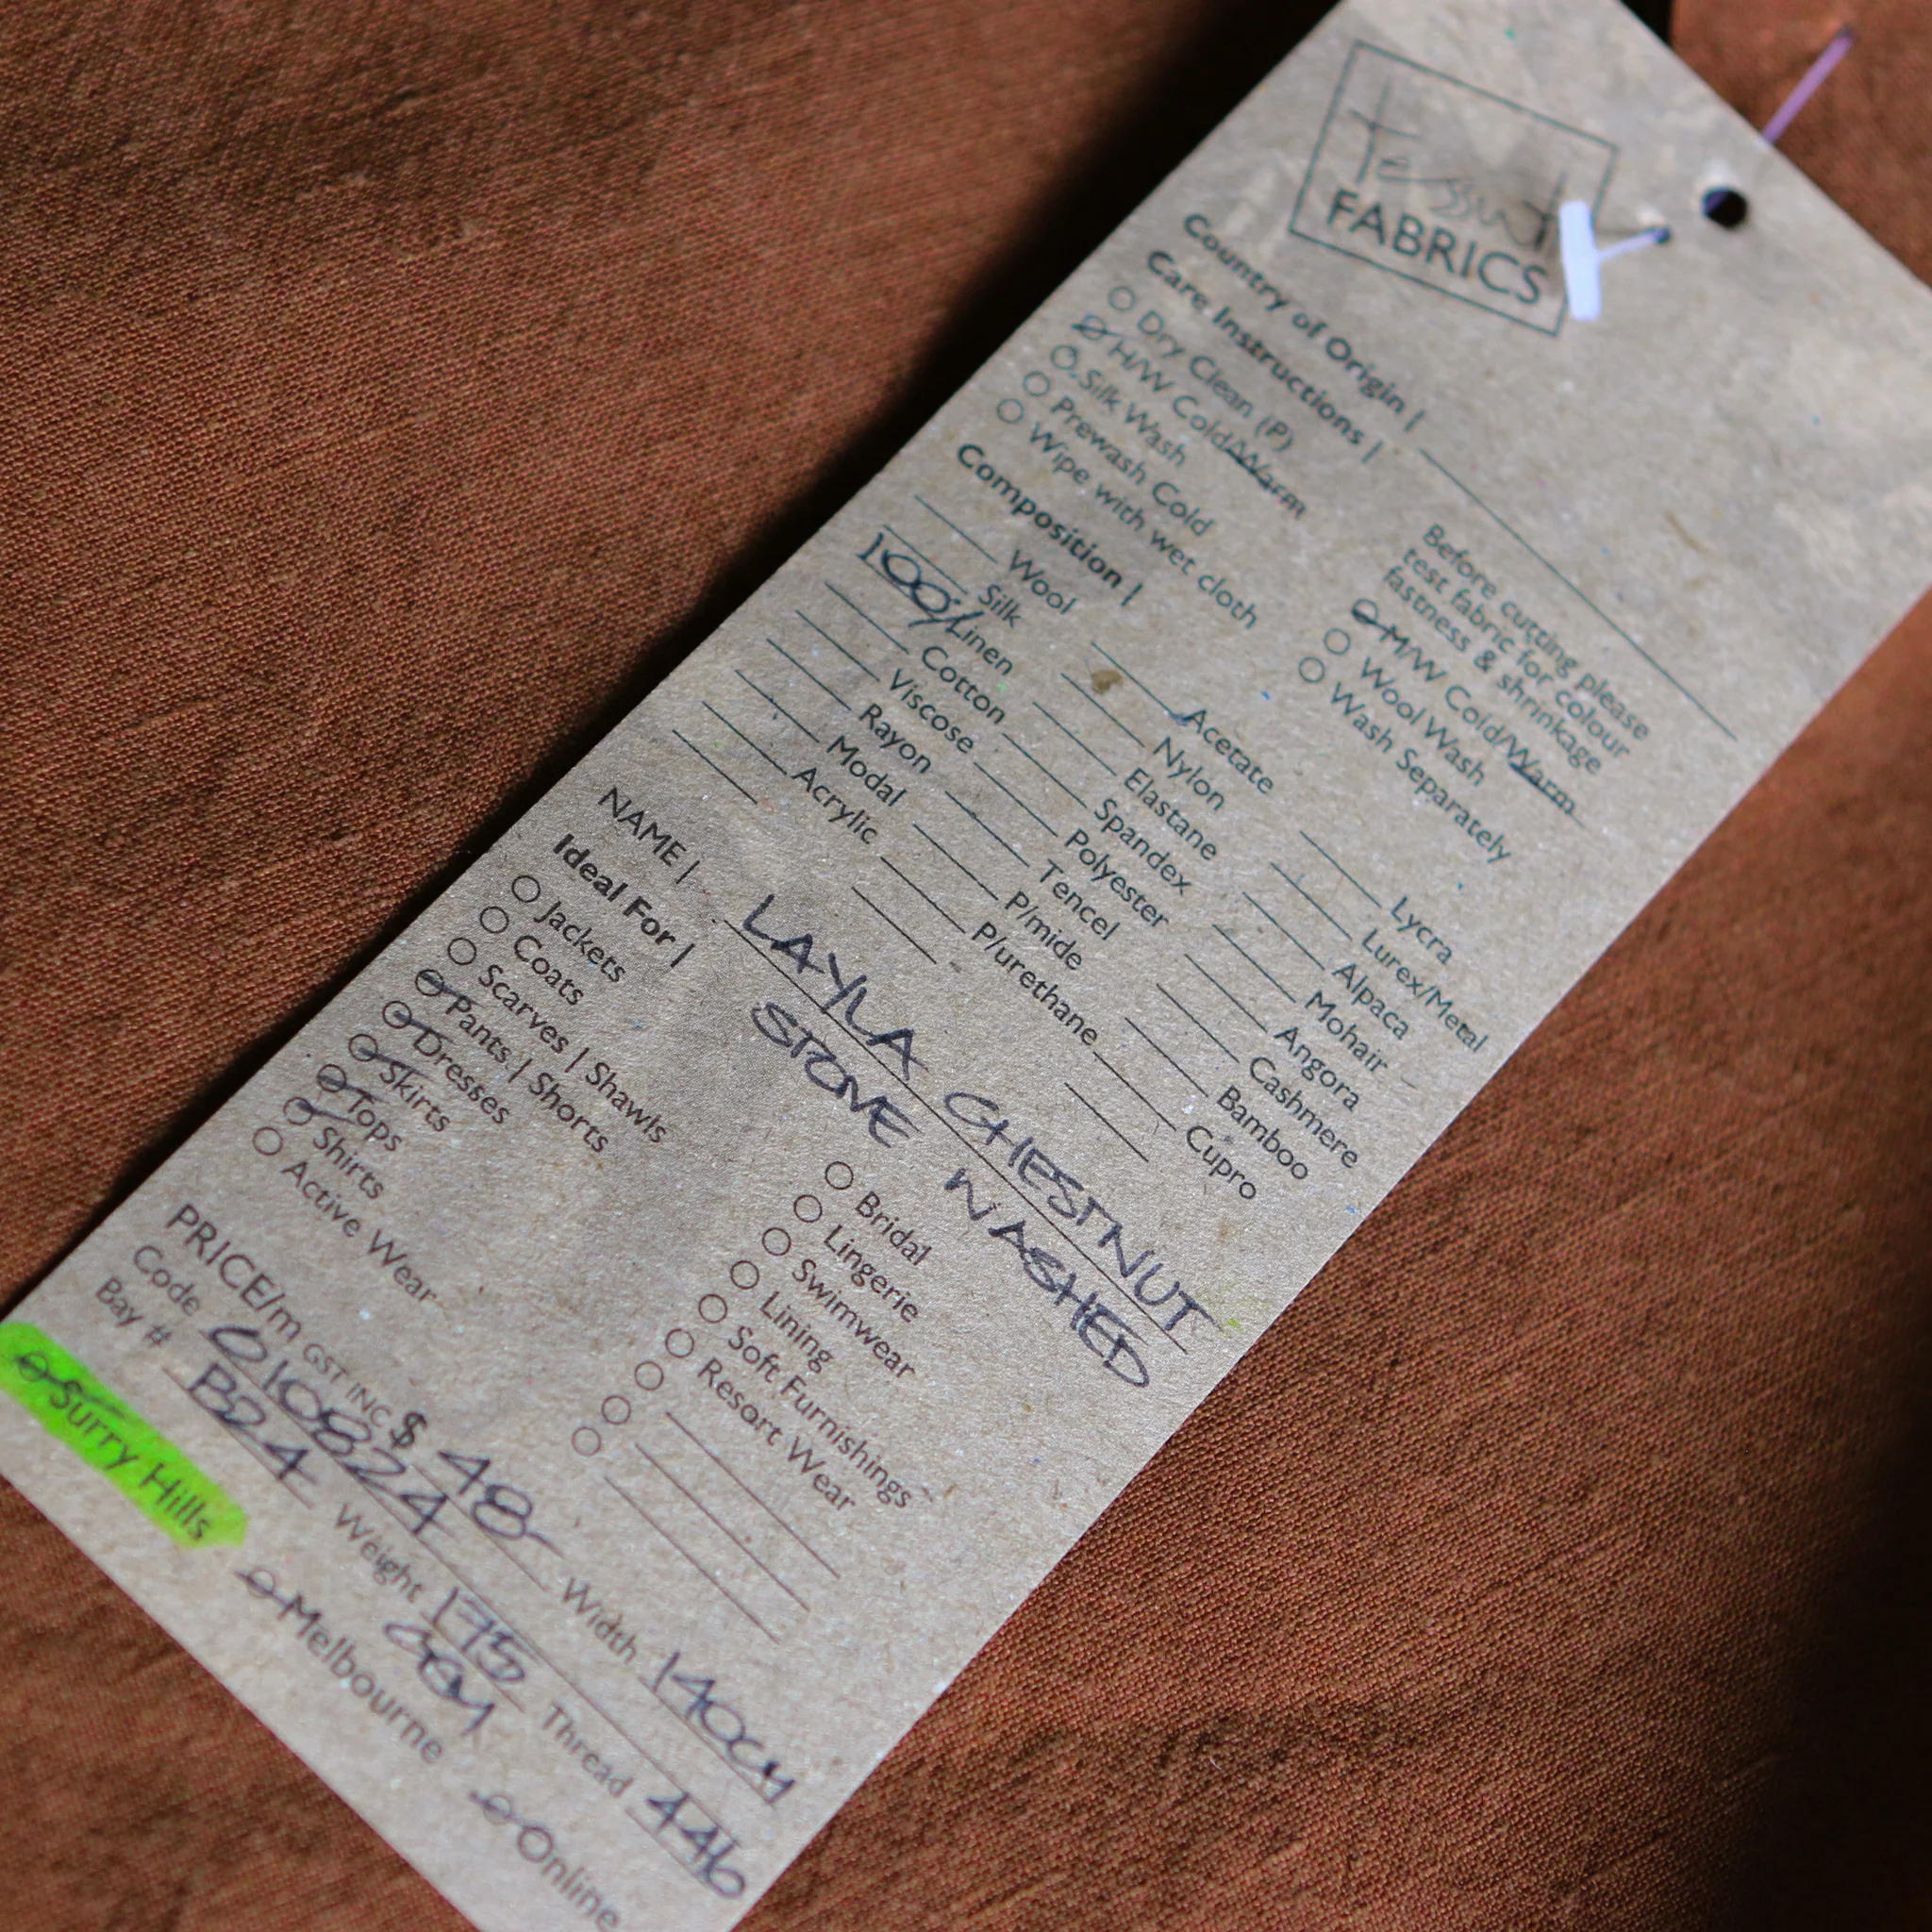 Tessuti
FABRICS
Country of Origin |
Care Instructions |
Before cutting please
test fabric for colour
fastness & shrinkage
Dry Clean (P)
H/W Cold/Warm
Silk Wash
Prewash Cold
Wipe with wet cloth
M/W Cold/Warm
Wool Wash
Wash Separately
Composition |
Wool
Silk
100% Linen
Cotton
Viscose
Rayon
Modal
Acrylic
Acetate
Nylon
Elastane
Spandex
Polyester
Tencel
P/mide
P/urethane
Lycra
Lurex/Metal
Alpaca
Mohair
Angora
Cashmere
Bamboo
Cupro
NAME | LAYLA CHESTNUT
STONE WASHED
Ideal For |
Jackets
Coats
Scarves | Shawls
Pants | Shorts
Dresses
Skirts
Tops
Shirts
Active Wear
Bridal
Lingerie
Swimwear
Lining
Soft Furnishings
Resort Wear
PRICE/m GST INC $ 48- Width 140CM
Code 010824 Weight 175 Thread 446
GSM
Bay # B24
Surry Hills Melbourne Online